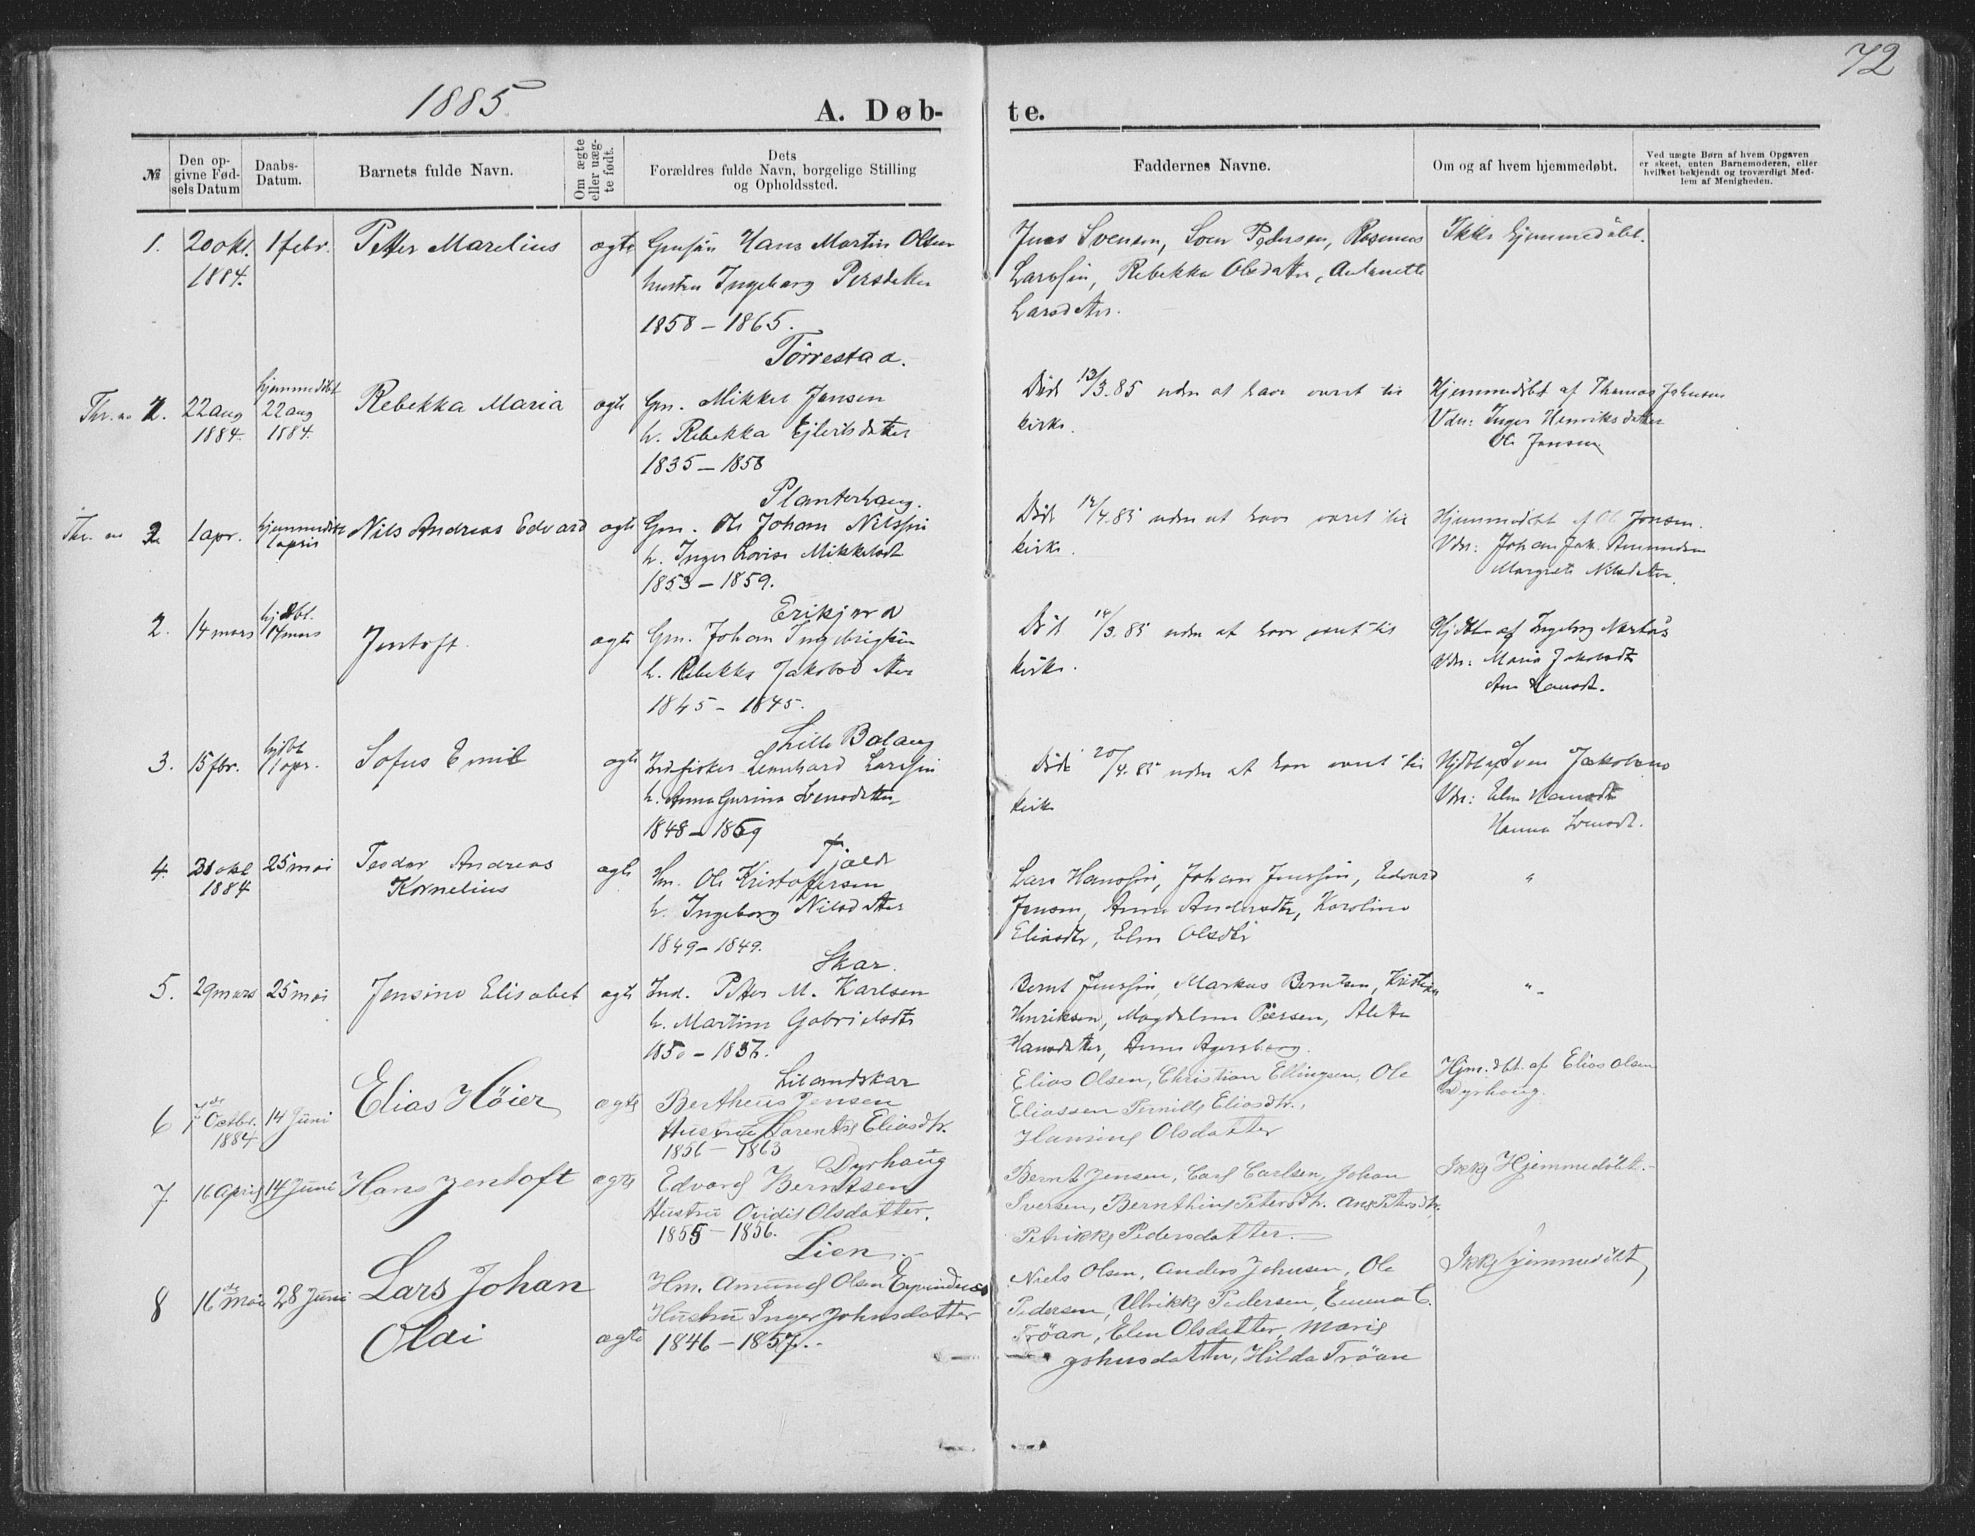 72
1885
A. Døb-
te.
№
Den op-
givne Fød-
sels Datum
Daabs-
Datum.
Barnets fulde Navn.
Om ægte
eller uæg-
te født.
Dets
Forældres fulde Navn, borgelige Stilling
og Opholdssted.
Faddernes Navne.
Om og af hvem hjemmedøbt.
Ved uægte Børn af hvem Opgaven
er skeet, enten Barnemoderen, eller
hvilket bekjendt og troværdigt Med-
lem af Menigheden.
1. 20 okt. 1 febr. Petter Marelius ægte Hans Martin Olsen
1884. hustru Ingeborg Persdatter
1858 - 1865.
Jens Svensen, Sven Pedersen, Rasmus
Larssøn, Rebekka Olsdatter, Antonette
Larsdatter.
Ikke hjemmedøbt.
Tørrestad.
22 aug hjemmedøbt 22 aug Rebekka Maria ægte Gm. Mikkel Jensen
1884. 1884. h. Rebekka Ejlertsdatter
1835 - 1858
Død 13/3.85 uden at have været til
kirke.
Hjemmedøbt af Thomas Johnsen
Vdn: Inger Henriksdatter
Ole Jensen
Planterhaug.
1 apr. hjemmedøbt Nils Andreas Edvard ægte Gm. Ole Johan Nilssøn
h. Inger Lovise Mikkelsdt
1853 - 1859.
Død 12/4.85 uden at have været til
kirke.
Hjemmedøbt af Ol Jensen.
Vdn: Johan Jak. Amundsen
Margrete Nilsdatter.
Erikjord
2. 14 mars hjdbt. 14 mars Jentoft. ægte Gm. Johan Ingebrigtsen
h. Rebekka Jakobsdatter
1845 - 1845.
Død 14/3.85 uden at have været til
kirke.
af Ingeborg
Vdn: Maria Jakobsdt
Ane Hansdt.
Lille Balang
3. 15 fbr. hjdbt 1 apr. Sofus Emil ægte Indfisker Leonhard Larssøn
h. Anna Gurina Svensdatter
1848 - 1869
Død 20/4.85 uden at have været til
kirke
Hjdbt af Sven Jakobsen
Vdn: Elen Hansdt
Hanna Svensdt.
Fjeldt
4. 31 okt 25 mai Teodor Andreas ægte Hm. Ole Kristoffersen
1884 Kornelius h. Ingeborg Nilsdatter
1849 - 1849.
Lars Hanssøn, Johan Jenssøn, Edvard
Jensen, Anne Andersdtr, Karoline
Eliasdtr, Elen Olsdtr
"
Skar.
5. 29 mars 25 mai Jensine Elisabet ægte Ind. Petter M. Karlsen
h. Martine Gabrielsdtr
1850 - 1857.
Bernt Jenssøn, Markus Berntsen, Kristian
Henriksen, Magdalena Peersen, Aletta
Hansdatter, Anne Agersborg.
"
Lilandskar
6 7de Octbr. 14 Juni Elias Höier ægte Bertheus Jensen
1884 Hustru Lorentse Eliasdtr.
1856 - 1863
Elias Olsen, Christian Ellingsen, Ole
Eliassen Pernille Eliasdtr.,
Hansine Olsdatter
Hjm.dbt. af Elias Olsen
Dyrhaug.
Dyrhaug
7 16 April 14 Juni Hans Jentoft ægte Edvard Berntsen
Hustru Ovidie Olsdatter.
1855 - 1856.
Bernt Jensen, Carl Carlsen, Johan
Iversen, Bernthine Petersdtr. Ane Petersdtr.
Petrikke Pedersdatter.
Ikke Hjemmedöbt.
Lien
8 16de Mai 28 Juni Lars Johan Hm. Amund Olsen Eyvindnes
Hustru Inger Johnsdatter
Olai ægte 1846 - 1857.
Niels Olsen, Anders Johnsen, Ole
Pedersen, Ulrikke Pedersen, Emma C.
Tröan, Elen Olsdatter, Marie
Johnsdatter, Hilda Tröan
Ikke hjemmedöbt